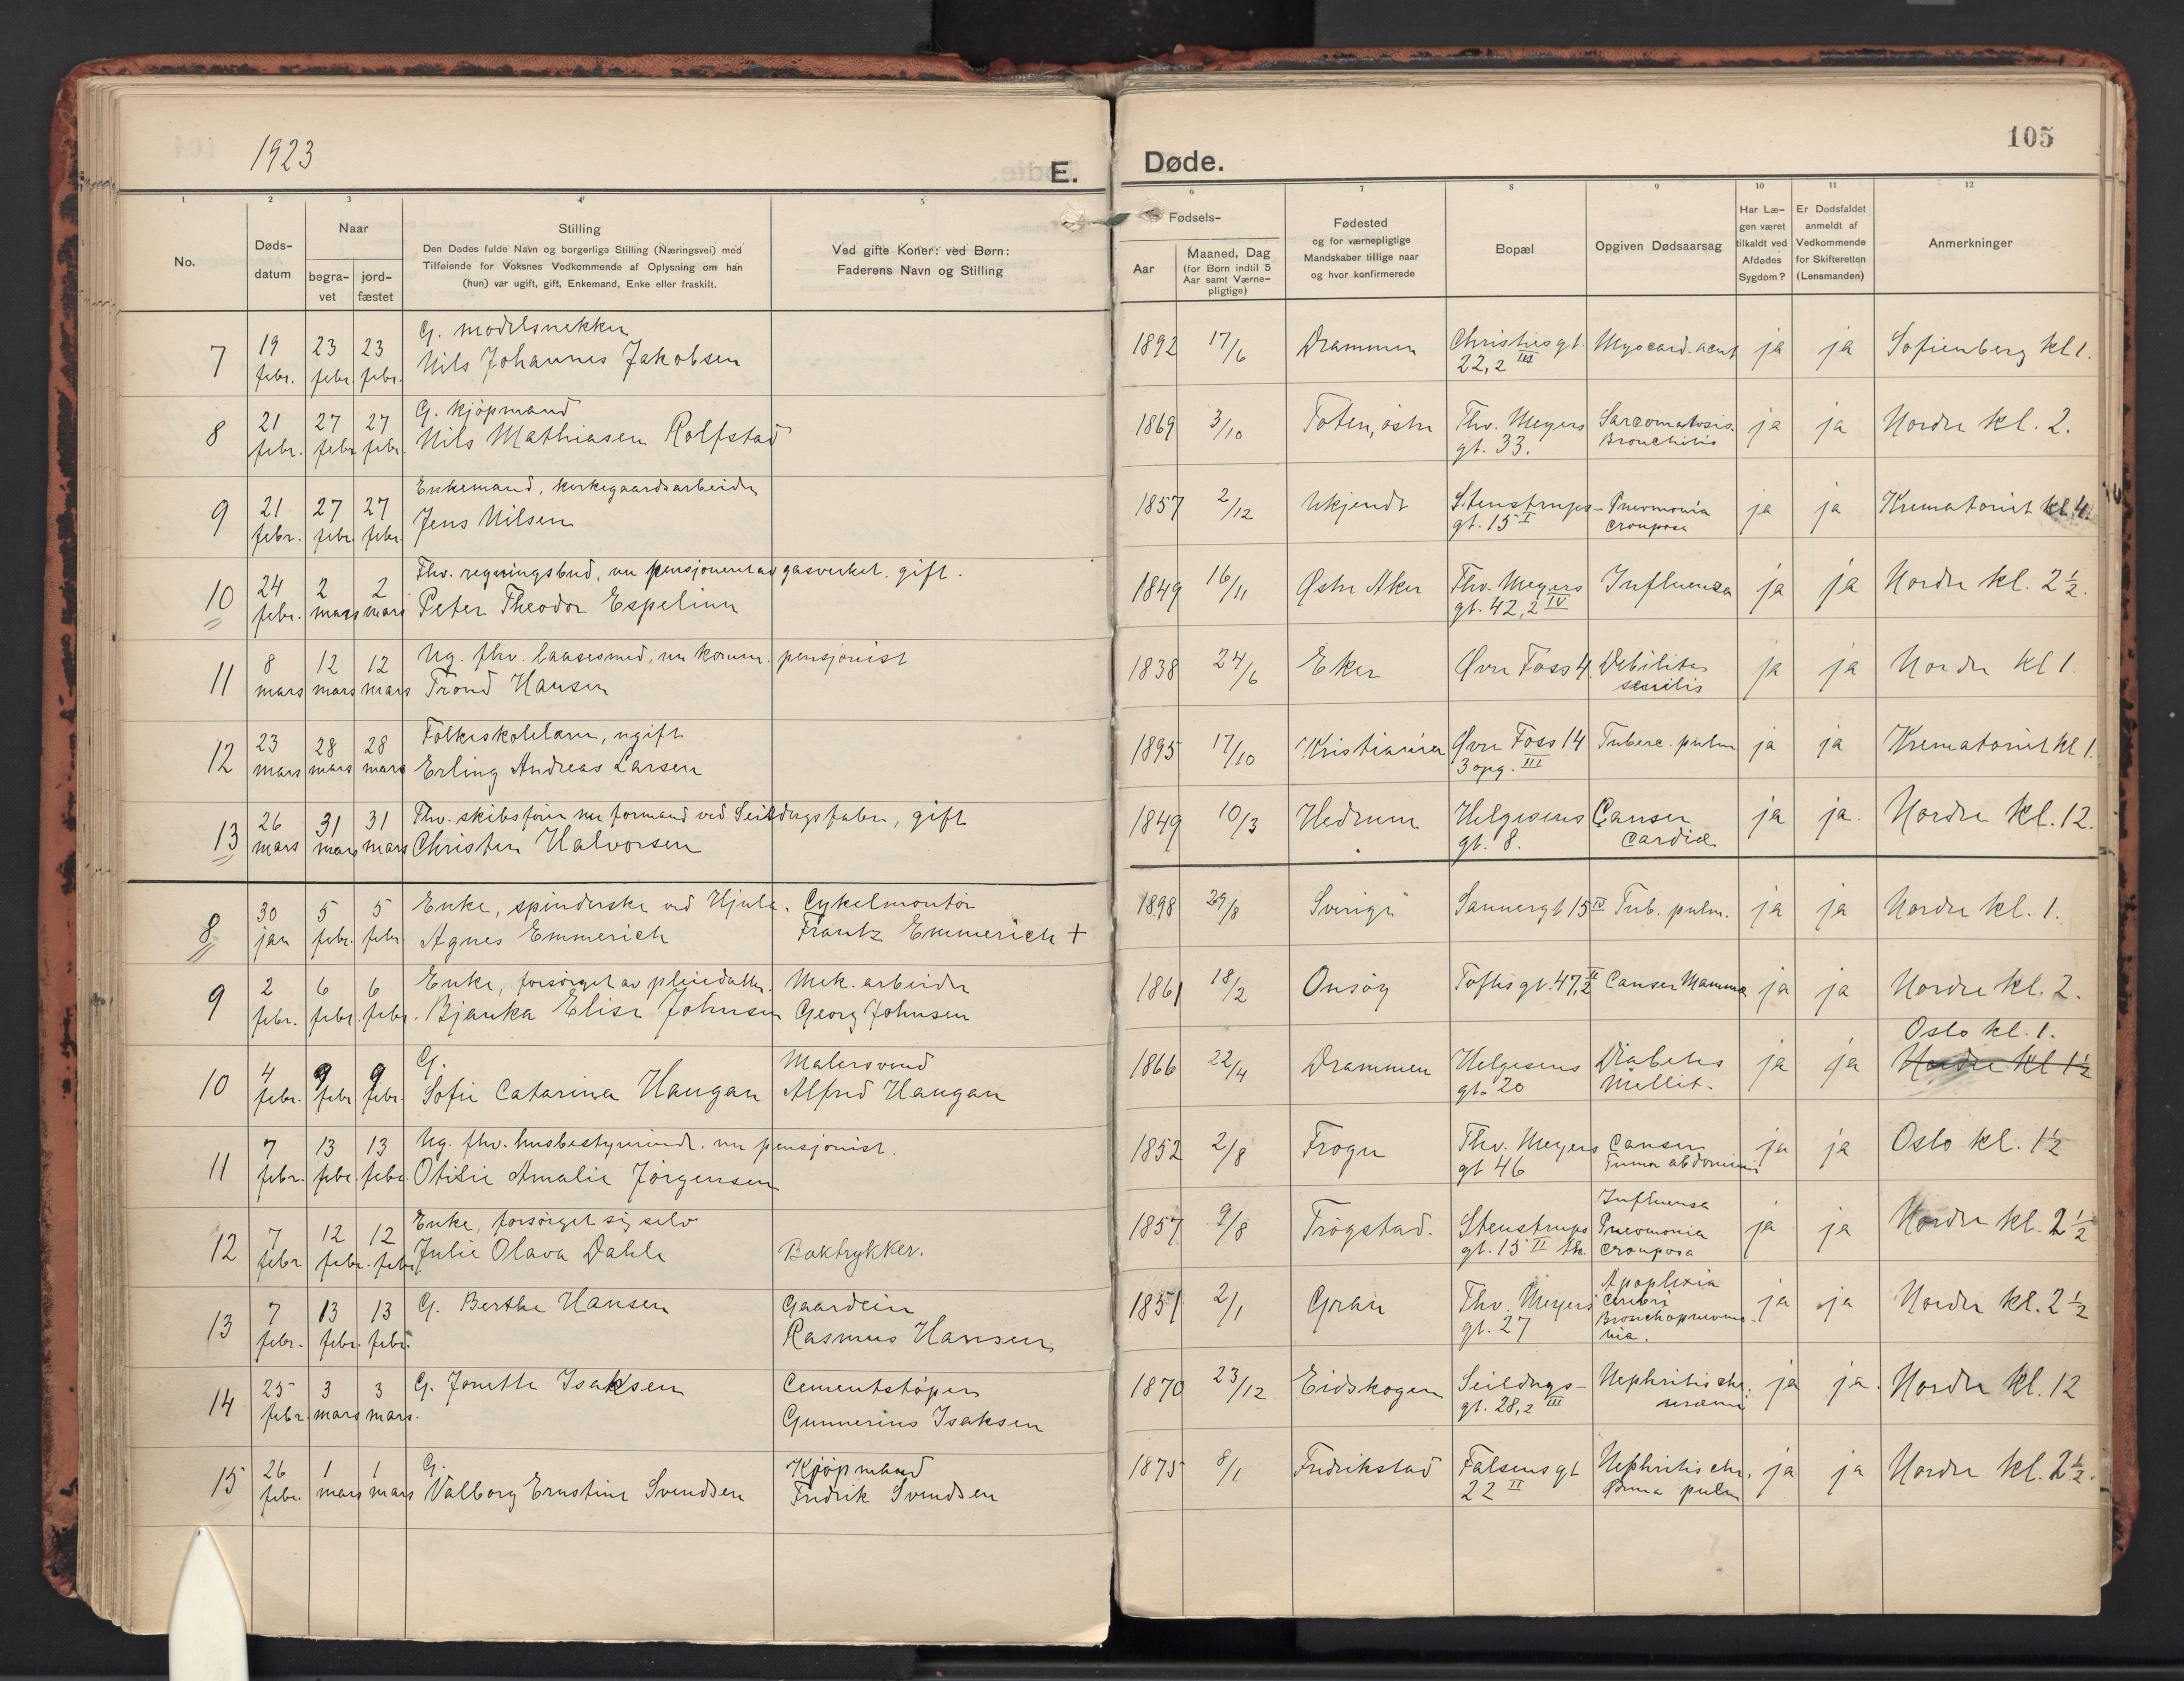 1923
E.
Døde.
105
1 2 3 4 5 6 7 8 9 10 11 12
No.
Døds-
datum
Naar
begra-
vet
jord-
fæstet
Stilling
Den Dødes fulde Navn og borgerlige Stilling (Næringsvei) med
Tilføiende for Voksnes Vedkommende af Oplysning om han
(hun) var ugift, gift, Enkemand, Enke eller fraskilt.
Ved gifte Koner: ved Børn:
Faderens Navn og Stilling
Fødsels-
Aar
Maaned, Dag
(for Børn indtil 5
Aar samt Værne-
pligtige)
Fødested
og for værnepligtige
Mandskaber tillige naar
og hvor konfirmerede
Bopæl
Opgiven Dødsaarsag
Har Læ-
gen været
tilkaldt ved
Afdødes
Sygdom?
Er Dødsfaldet
anmeldt af
Vedkommende
for Skifteretten
(Lensmanden)
Anmerkninger
7 19 febr. 23 febr. 23 febr. G. modelsnekker
Nils Johannes Jakobsen
1892 17/6 Drammen Christies gt. 22,2 III Myocard. acut ja ja Sofienberg kl 1.
8 21 febr. 27 febr. 27 febr. G. kjøpmand
Nils Mathiasen Rolfstad
1869 3/10 Toten, østre Thv. Meyers gt. 33. Sarcomatosis. Bronchitis ja ja Nordre kl. 2.
9 21 febr. 27 febr. 27 febr. Enkemand, kirkegaardsarbeider
Jens Nilsen
1857 2/12 Ukjendt Stenstrups- gt. 15 I Pneumonia crouposa ja ja Krematoriet kl. 4.
10 24 febr. 2 mars 2 mars Fhv. regningsbud, nu pensjonert av gasverket. gift.
Peter Theodor Espelinn
1849 16/11 Østre Aker Thv. Meyers gt. 42,2 IV Influenza ja ja Nordre kl. 2 ½.
11 8 mars 12 mars 12 mars Ug. fhv. laasesmed, nu komm. pensjonist
Trond Hansen
1838 24/6 Eker Øvre Foss 4. Debilitas senilis ja ja Nordre kl 1.
12 23 mars 28 mars 28 mars Folkeskolelærer, ugift
Erling Andreas Larsen
1895 17/10 Kristiania Øvre Foss 14 3 opg. III Tuberc. pulm ja ja Krematoriet kl 1.
13 26 mars 31 mars 31 mars Fhv. skibsfører nu formand ved Seildugsfabr., gift
Christen Halvorsen
1849 10/3 Hedrum Helgesens gt. 8. Canser Cardiæ ja ja. Nordre kl. 12.
8 30 jan 5 febr. 5 febr Enke, spinderske ved Hjula. Cykelmontør
Agnes Emmerich Frantz Emmerich +
1898 29/8 Sverige Sannergt 15 IV Tub. pulm. ja ja Nordre kl. 1.
9 2 febr. 6 febr. 6 febr. Enke, forsørget av pleiedatter. Mek. arbeider
Bjanka Elise Johnsen Georg Johnsen
1861 18/2 Onsøy Toftes gt. 47,2 II Canser Mamma ja ja Nordre kl. 2.
10 4 febr. 9 febr 9 febr. G. Malersvend
Sofie Catarina Haugan Alfred Haugan
1866 22/4 Drammen Helgesens gt. 20 Diabetes Mellit. ja ja Oslo kl. 1.
Nordre kl 1½
11 7 febr. 13 febr. 13 febr. Ug. fhv. husbestyrerinde. nu pensjonist.
Otilie Amalie Jørgensen
1852 2/8 Frogn Thv. Meyers gt 46 Canser Tumor abdominis ja ja Oslo kl. 1½
12 7 febr 12 febr. 12 febr Enke, forsørget sig selv
Julie Olava Dahle Boktrykker.
1857 9/8 Trøgstad. Stenstrups gt. 15 II th. Influensa Pneumonia crouposa ja ja Nordre kl. 2½
13 7 febr. 13 febr. 13 febr. G. Berthe Hansen Gaardeier
Rasmus Hansen
1851 2/1 Gran Thv. Meyers gt. 27 Apoplexia cerebri Bronchopneumo- nia. ja ja Nordre kl. 2½
14 25 febr. 3 mars 3 mars. G. Jonette Isaksen Cementstøper
Gunnerius Isaksen
1870 23/12 Eidskogen Seildugs- gt. 28,2 III Nephritis chr. uræmi ja ja. Nordre kl. 12
15 26 febr. 1 mars 1 mars G. Kjøpmand
Valborg Ernstine Svendsen Fredrik Svendsen
1875 8/1 Fredrikstad Falsens gt 22 II Nephritis chr. pulm ja ja Nordre kl. 2½.